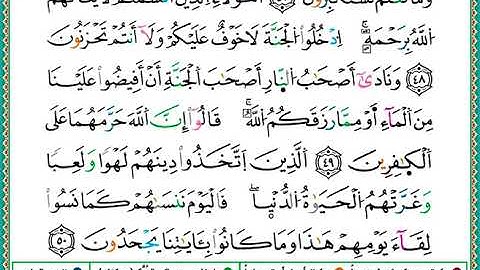 ٱللَّهُ بِرَحْمَةٍ ۚ ٱدْخُلُوا۟ ٱلْجَنَّةَ لَا خَوْفٌ عَلَيْكُمْ وَلَآ أَنتُمْ تَحْزَنُونَ
٤٨ وَنَادَىٰٓ أَصْحَٰبُ ٱلنَّارِ أَصْحَٰبَ ٱلْجَنَّةِ أَنْ أَفِيضُوا۟ عَلَيْنَا
مِنَ ٱلْمَآءِ أَوْ مِمَّا رَزَقَكُمُ ٱللَّهُ ۚ قَالُوٓا۟ إِنَّ ٱللَّهَ حَرَّمَهُمَا عَلَى
ٱلْكَٰفِرِينَ ٤٩ ٱلَّذِينَ ٱتَّخَذُوا۟ دِينَهُمْ لَهْوًا وَلَعِبًا
وَغَرَّتْهُمُ ٱلْحَيَوٰةُ ٱلدُّنْيَا ۚ فَٱلْيَوْمَ نَنسَىٰهُمْ كَمَا نَسُوا۟
لِقَآءَ يَوْمِهِمْ هَٰذَا وَمَا كَانُوا۟ بِـَٔايَٰتِنَا يَجْحَدُونَ ٥٠